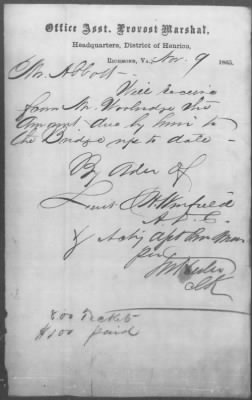 Office Asst. Provost Marshal,
Headquarters, District of Henrico,
Richmond, Va., Nov 9 1865.
Mr. Abbott
Will receive
from Mr. Woolridge the
Amount due by him to
the Bridge up to date
By Order of
Lieut
A. P. C.
& Actg Asst Pro Mar
per
Clk
800 Tickets
$100 paid